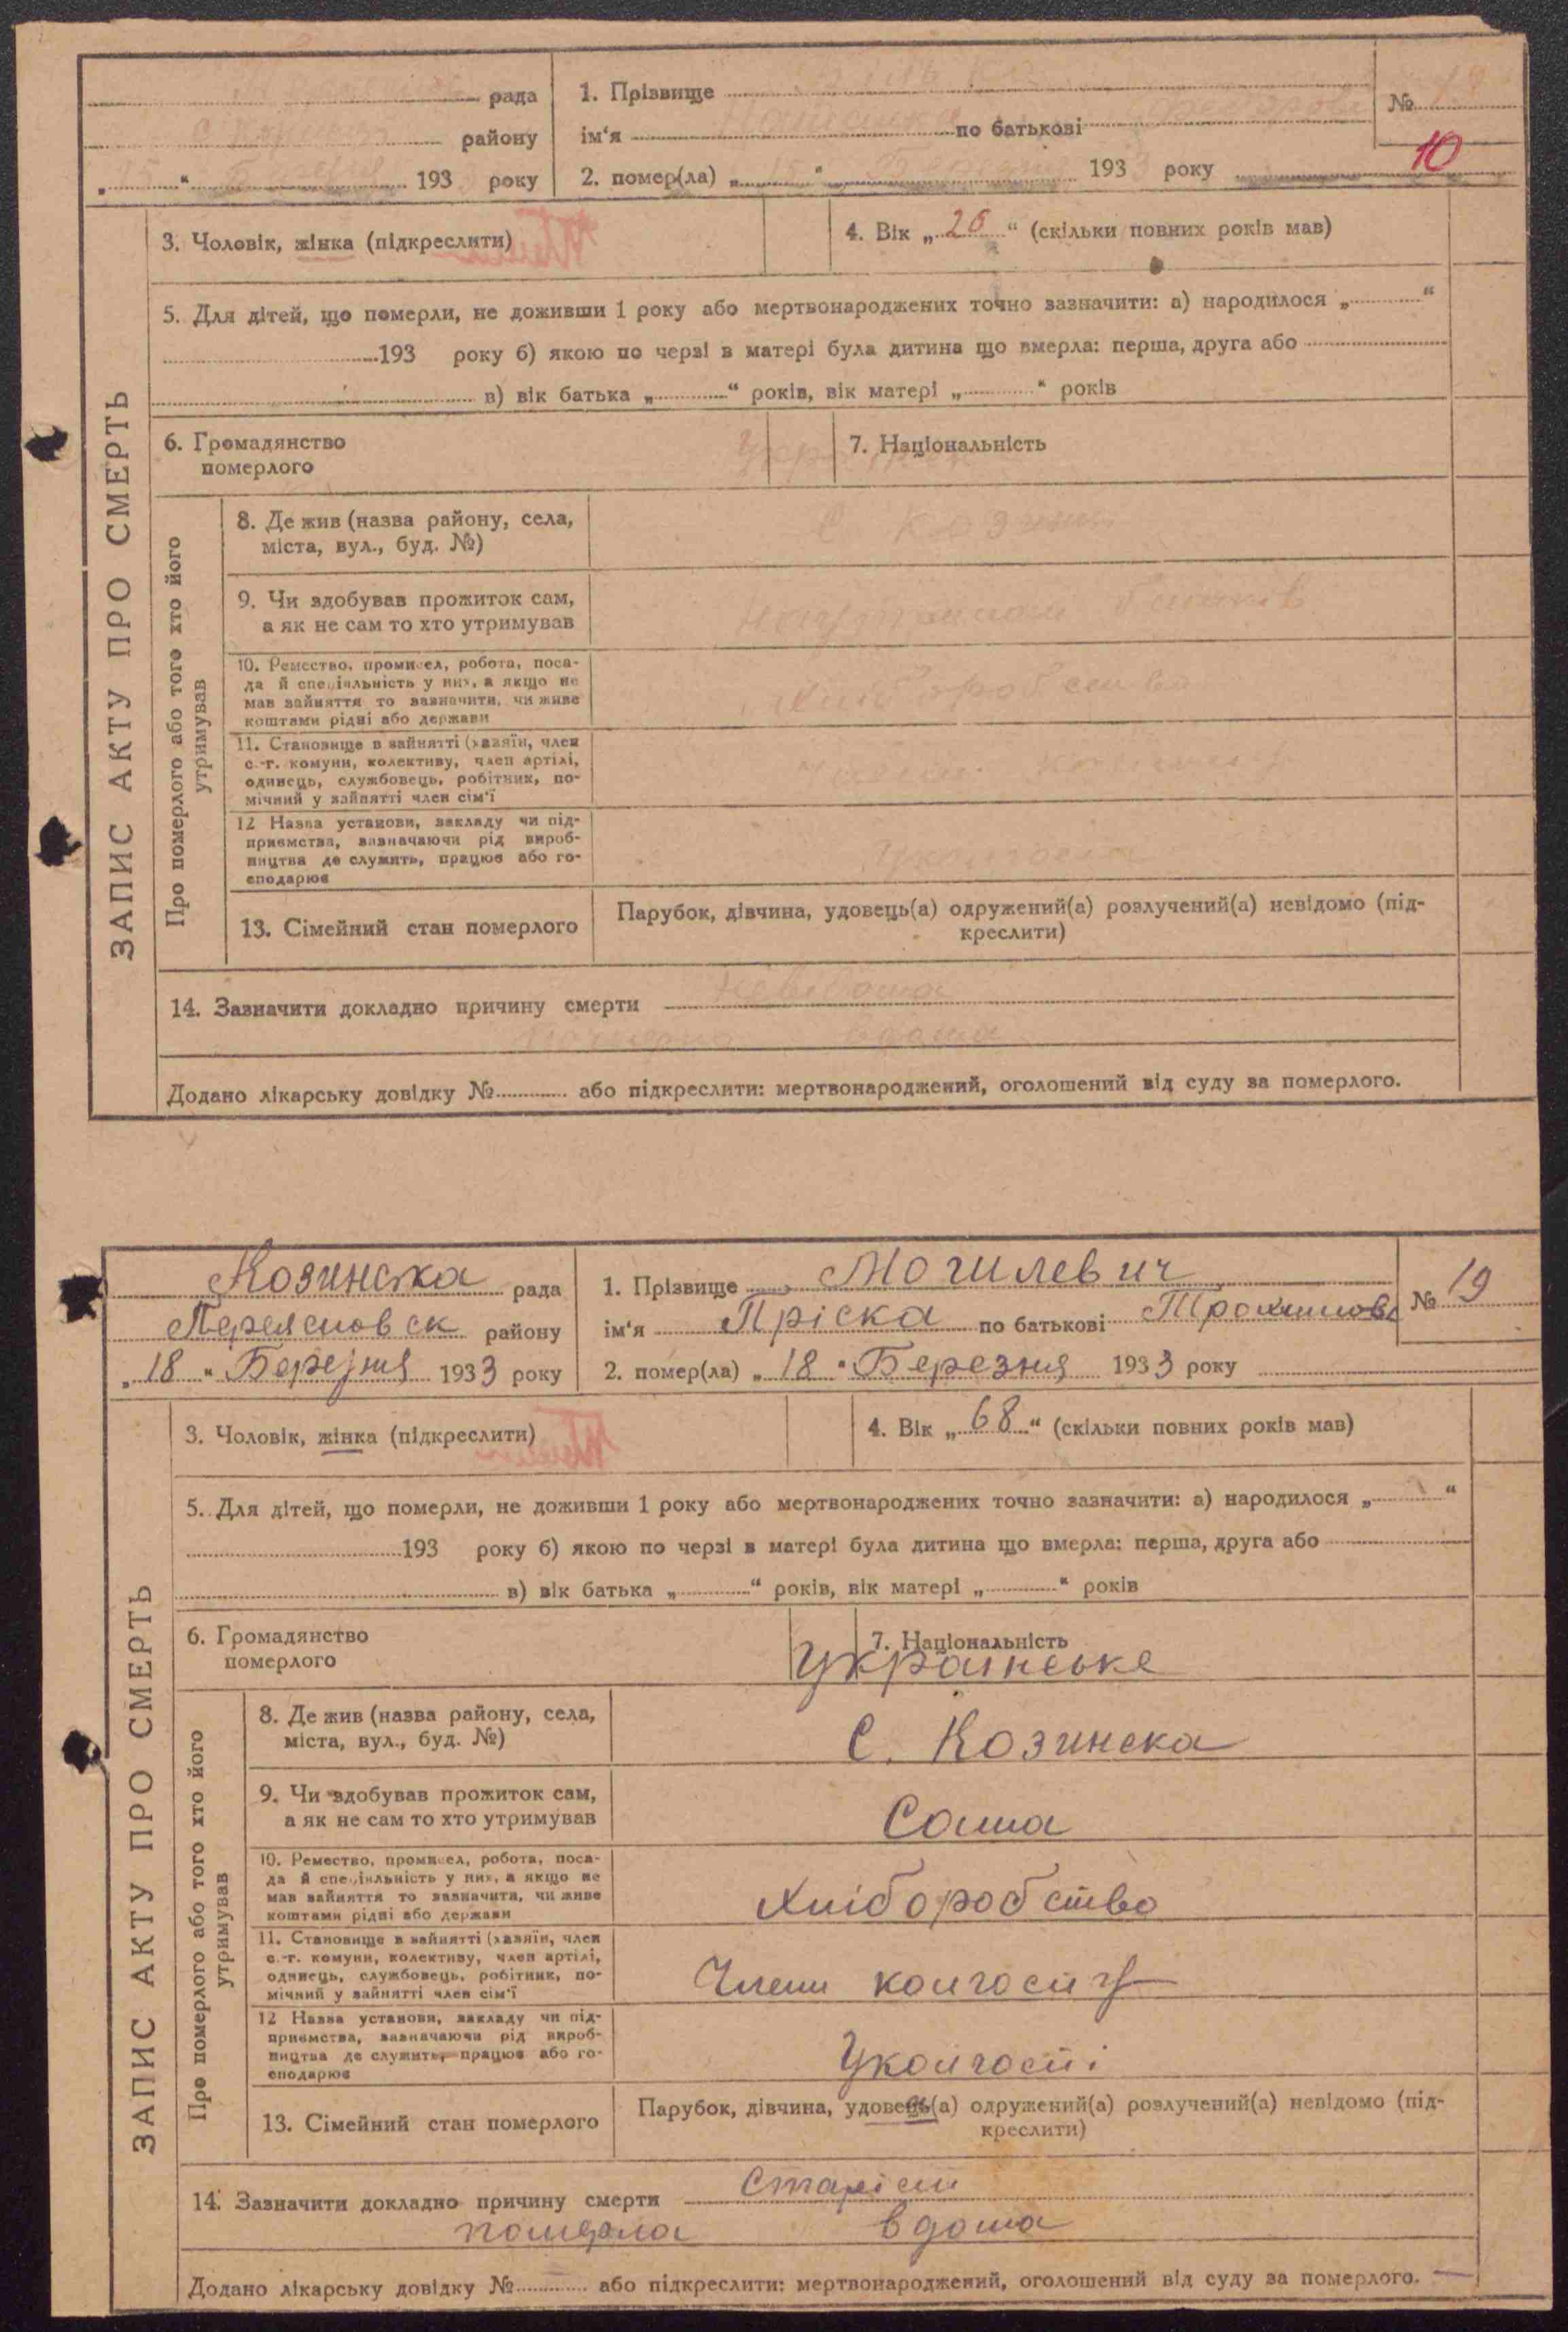 рада
району
193 року
1. Прізвище
ім'я по батькові
2. помер(ла) „ “ 193 року
№
10
ЗАПИС АКТУ ПРО СМЕРТЬ
3. Чоловік, жінка (підкреслити)
4. Вік „26“ (скільки повних років мав)
5. Для дітей, що померли, не доживши 1 року або мертвонароджених точно зазначити: а) народилося „ “
193 року б) якою по черзі в матері була дитина що вмерла: перша, друга або
в) вік батька „ “ років, вік матері „ “ років
6. Громадянство
померлого
7. Національність
Про померлого або того хто його
утримував
8. Де жив (назва району, села,
міста, вул., буд. №)
9. Чи здобував прожиток сам,
а як не сам то хто утримував
10. Ремество, промисел, робота, поса-
да й спеціяльність у них, а якщо не
мав зайняття то зазначити, чи живе
коштами рідні або держави
Хліборобство
11. Становище в зайнятті (хазяїн, член
с.-г. комуни, колективу, член артілі,
одинець, службовець, робітник, по-
мічний у зайнятті член сім'ї
12 Назва установи, закладу чи під-
приємства, зазначаючи рід вироб-
ництва де служить, працює або го-
сподарює
13. Сімейний стан померлого
Парубок, дівчина, удовець(а) одружений(а) розлучений(а) невідомо (під-
креслити)
14. Зазначити докладно причину смерти
вдома
Додано лікарську довідку № або підкреслити: мертвонароджений, оголошений від суду за померлого.
Козинська рада
Переяслов ск району
„18“ Березня 1933 року
1. Прізвище Могилевич
ім'я Пріска по батькові Трохимовна
2. помер(ла) „18“ Березня 1933 року
№ 19
ЗАПИС АКТУ ПРО СМЕРТЬ
3. Чоловік, жінка (підкреслити)
4. Вік „68“ (скільки повних років мав)
5. Для дітей, що померли, не доживши 1 року або мертвонароджених точно зазначити: а) народилося „ “
193 року б) якою по черзі в матері була дитина що вмерла: перша, друга або
в) вік батька „ “ років, вік матері „ “ років
6. Громадянство
померлого
7. Національність
Українське
Про померлого або того хто його
утримував
8. Де жив (назва району, села,
міста, вул., буд. №)
С. Козинска
9. Чи здобував прожиток сам,
а як не сам то хто утримував
Сама
10. Ремество, промисел, робота, поса-
да й спеціяльність у них, а якщо не
мав зайняття то зазначити, чи живе
коштами рідні або держави
Хліборобство
11. Становище в зайнятті (хазяїн, член
с.-г. комуни, колективу, член артілі,
одинець, службовець, робітник, по-
мічний у зайнятті член сім'ї
Член колгоспу
12 Назва установи, закладу чи під-
приємства, зазначаючи рід вироб-
ництва де служить, працює або го-
сподарює
Уколгоспі
13. Сімейний стан померлого
Парубок, дівчина, удовець(а) одружений(а) розлучений(а) невідомо (під-
креслити)
14. Зазначити докладно причину смерти Старість
померла вдома
Додано лікарську довідку № або підкреслити: мертвонароджений, оголошений від суду за померлого.